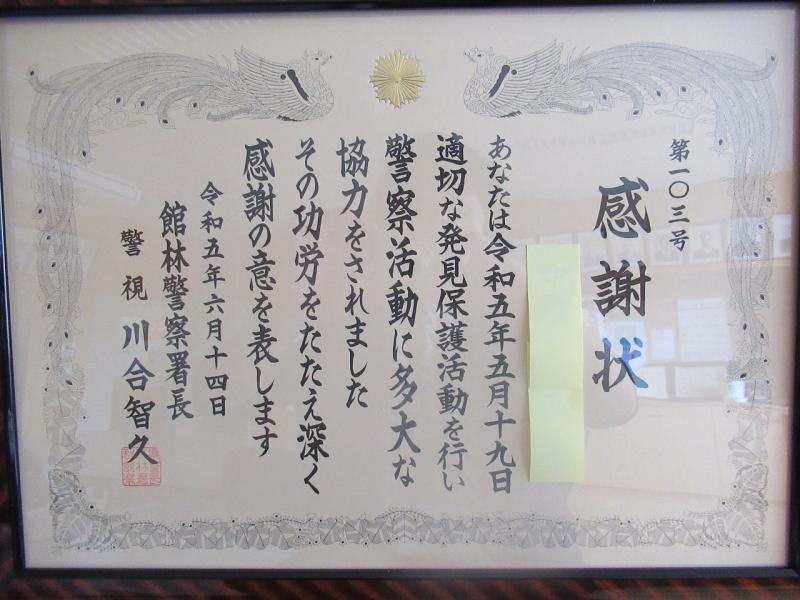 第一〇三号
感謝状
あなたは令和五年五月十九日
適切な発見保護活動を行い
警察活動に多大な
協力をされました
その功労をたたえ深く
感謝の意を表します
令和五年六月十四日
館林警察署長
警視 川合智久